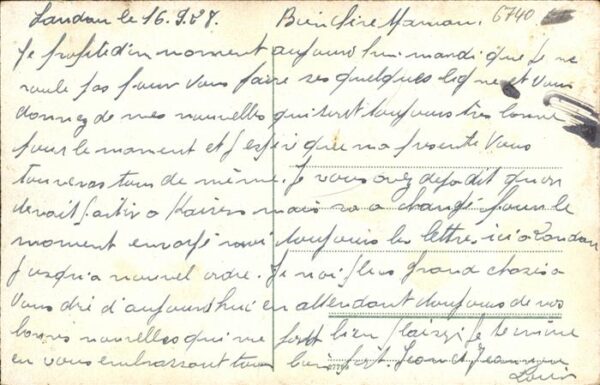 Landau le 16.9.28. Bien Chère Maman. 6740
Je profite d'un moment aujourd'hui mardi que je ne
roule pas pour vous faire ses quelques ligne et vous
donnez de mes nouvelles qui sont toujours très bonne
pour le moment et j'espère que ma présente vous
touveras tous de même. Je vous avez deja dit qu'on
devait partir a mais sa a changé pour le
moment toujours les lettres ici a Landau
jusqu'a nouvel ordre. Je n'ai plus grand choses a
vous dire d'aujourd'hui en attendant toujours de vos
bonnes nouvelles qui me font bien plaisir Je termine
en vous embrassant tous bien fort. Jean et Jeannon
Louis